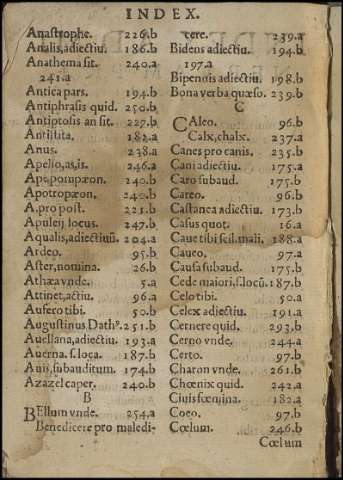 INDEX.
Anastrophe. 226.b
Analis, adiectiu. 186.b
Anathema sit. 240.a
241.a
Antica pars. 194.b
Antiphrasis quid. 250.b
Antiptosis an sit. 227.b
Antistita. 182.a
Anus. 238.a
Apelio, as, is. 246.a
Apopompæon. 240.b
Apotropæon. 240.b
A, pro post. 221.b
Apuleij locus. 247.b
Aqualis, adiectiuũ. 204.a
Ardeo. 95.b
Aster, nomina. 26.b
Athæa vnde. 5.a
Attinet, actiu. 96.a
Aufero tibi. 50.b
Augustinus Dath⁹. 251.b
Auellana, adiectiu. 193.a
Auerna. s. loca. 187.b
Auis, subauditum. 174.b
Azazel caper. 240.b
B
BEllum vnde. 254.a
Benedicere pro maledi-
cere. 239.a
Bidens adiectiu. 194.b
197.a
Bipennis adiectiu. 198.b
Bona verba quæso. 239.b
C
CAleo. 96.b
Calx, chalx. 237.a
Canes pro canis. 235.b
Cani adiectiu. 175.a
Caro subaud. 175.b
Careo. 96.b
Castanea adiectiu. 173.b
Casus quot. 16.a
Caue tibi scil. mali. 188.a
Caueo. 97.a
Causa subaud. 175.b
Cede maiori, s. locũ. 187.b
Celo tibi. 50.a
Celox adiectiu. 191.a
Cernere quid. 293.b
Cerno vnde. 244.a
Certo. 97.b
Charon vnde. 261.b
Chœnix quid. 242.a
Ciuis fœmina. 182.a
Coeo. 97.b
Cœlum. 246.b
Cœlum